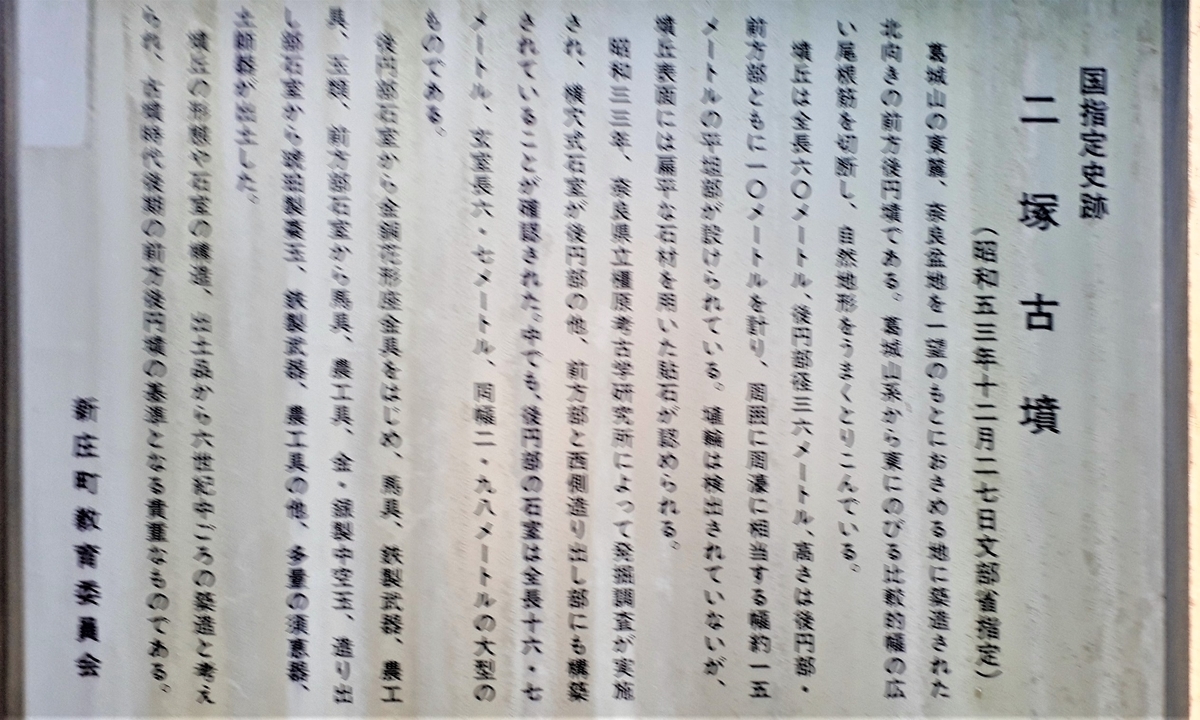 国指定史跡
二塚古墳
（昭和五三年十二月二七日文部省指定）
葛城山の東麓、奈良盆地を一望のもとにおさめる地に築造された
北向きの前方後円墳である。葛城山系から東にのびる比較的幅の広
い尾根筋を切断し、自然地形をうまくとりこんでいる。
墳丘は全長六〇メートル、後円部径三六メートル、高さは後円部・
前方部ともに一〇メートルを計り、周囲に周濠に相当する幅約一五
メートルの平坦部が設けられている。埴輪は検出されていないが、
墳丘表面には扁平な石材を用いた貼石が認められる。
昭和三三年、奈良県立橿原考古学研究所によって発掘調査が実施
され、横穴式石室が後円部の他、前方部と西側造り出し部にも構築
されていることが確認された。中でも、後円部の石室は全長十六・七
メートル、玄室長六・七メートル、同幅二・九八メートルの大型の
ものである。
後円部石室から金銅花形座金具をはじめ、馬具、鉄製武器、農工
具、玉類、前方部石室から馬具、農工具、金・銀製中空玉、造り出
し部石室から琥珀製棗玉、鉄製武器、農工具の他、多量の須恵器、
土師器が出土した。
墳丘の形態や石室の構造、出土品から六世紀中ごろの築造と考え
られ、古墳時代後期の前方後円墳の基準となる貴重なものである。
新庄町教育委員会